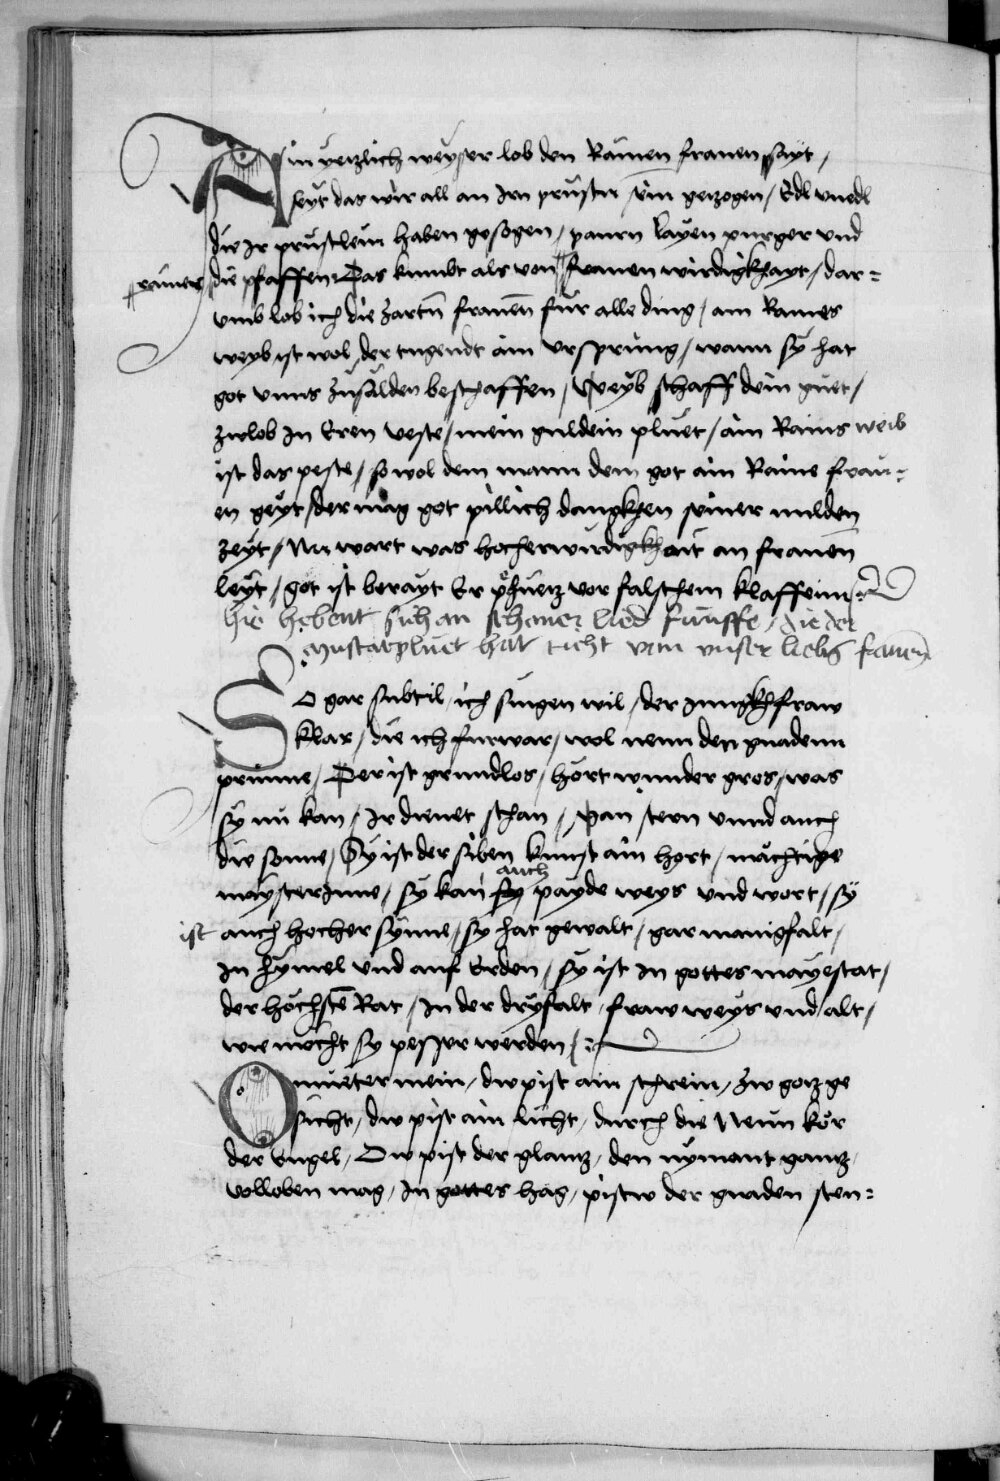 Ain yetzlich weyser lob den Rainen frauen sayt /
seyt das wir all an irn prüstn sein getzogen / Edl vnedl
die Ir prustlein haben gesogen / paurn layen purger vnd
die pfaffen Das kumbt als von frauen wirdigkhayt / dar=
rainer
vmb lob ich die zartn frauen fur alle ding / am Raines
weyb ist wol der tugendt ain vrsprung / wann sy hat
got vnns zusälden beschaffen / Weyb schaff dein guet /
zwlob In Eren veste / mein guldein pluet / ain Rains weib
ist das peste / so wol dem mann dem got ain Raine frau=
en geyt / der mag got pillich dangkhen seiner milden
zeyt / Nu wart was hocherwirdigkhait an frauen
leyt / got ist berayt Er phüetz vor falschem klaffenn
hie hebent sich an schoner lied funffe / die der
Muscatpluet hat ticht van vnser liebn frauen
So gar subtil / ich singen wil / der Jungkhfraw
klar / die ich furwar / wol nenn den gnadenn
prunne / Der ist grundlos / hort wunder gros / was
sy nu kan / Ir dienet schan / Man stern vnnd auch
die sonne / Sy ist der siben kunst ain hort / mächtige
auch
maysterinne / sy kan sy payde weys vnd wort / sy
ist auch hocher synne / sy hat gewalt / gar manigfalt /
In hymel vnd auf Erden / sy ist In gottes mayestat /
der höchste Rat / In der dryfalt / fraw weys vnd alt /
wie mocht sy pesser werden /
O mueter mein / dw pist ain schrein / zw gotz ge
sicht / dw pist ain licht / durch die Neun kör
der Engel / Dw pist der glantz / den nymant gantz
volloben mag / In gottes hag / pistw der gnaden sten=